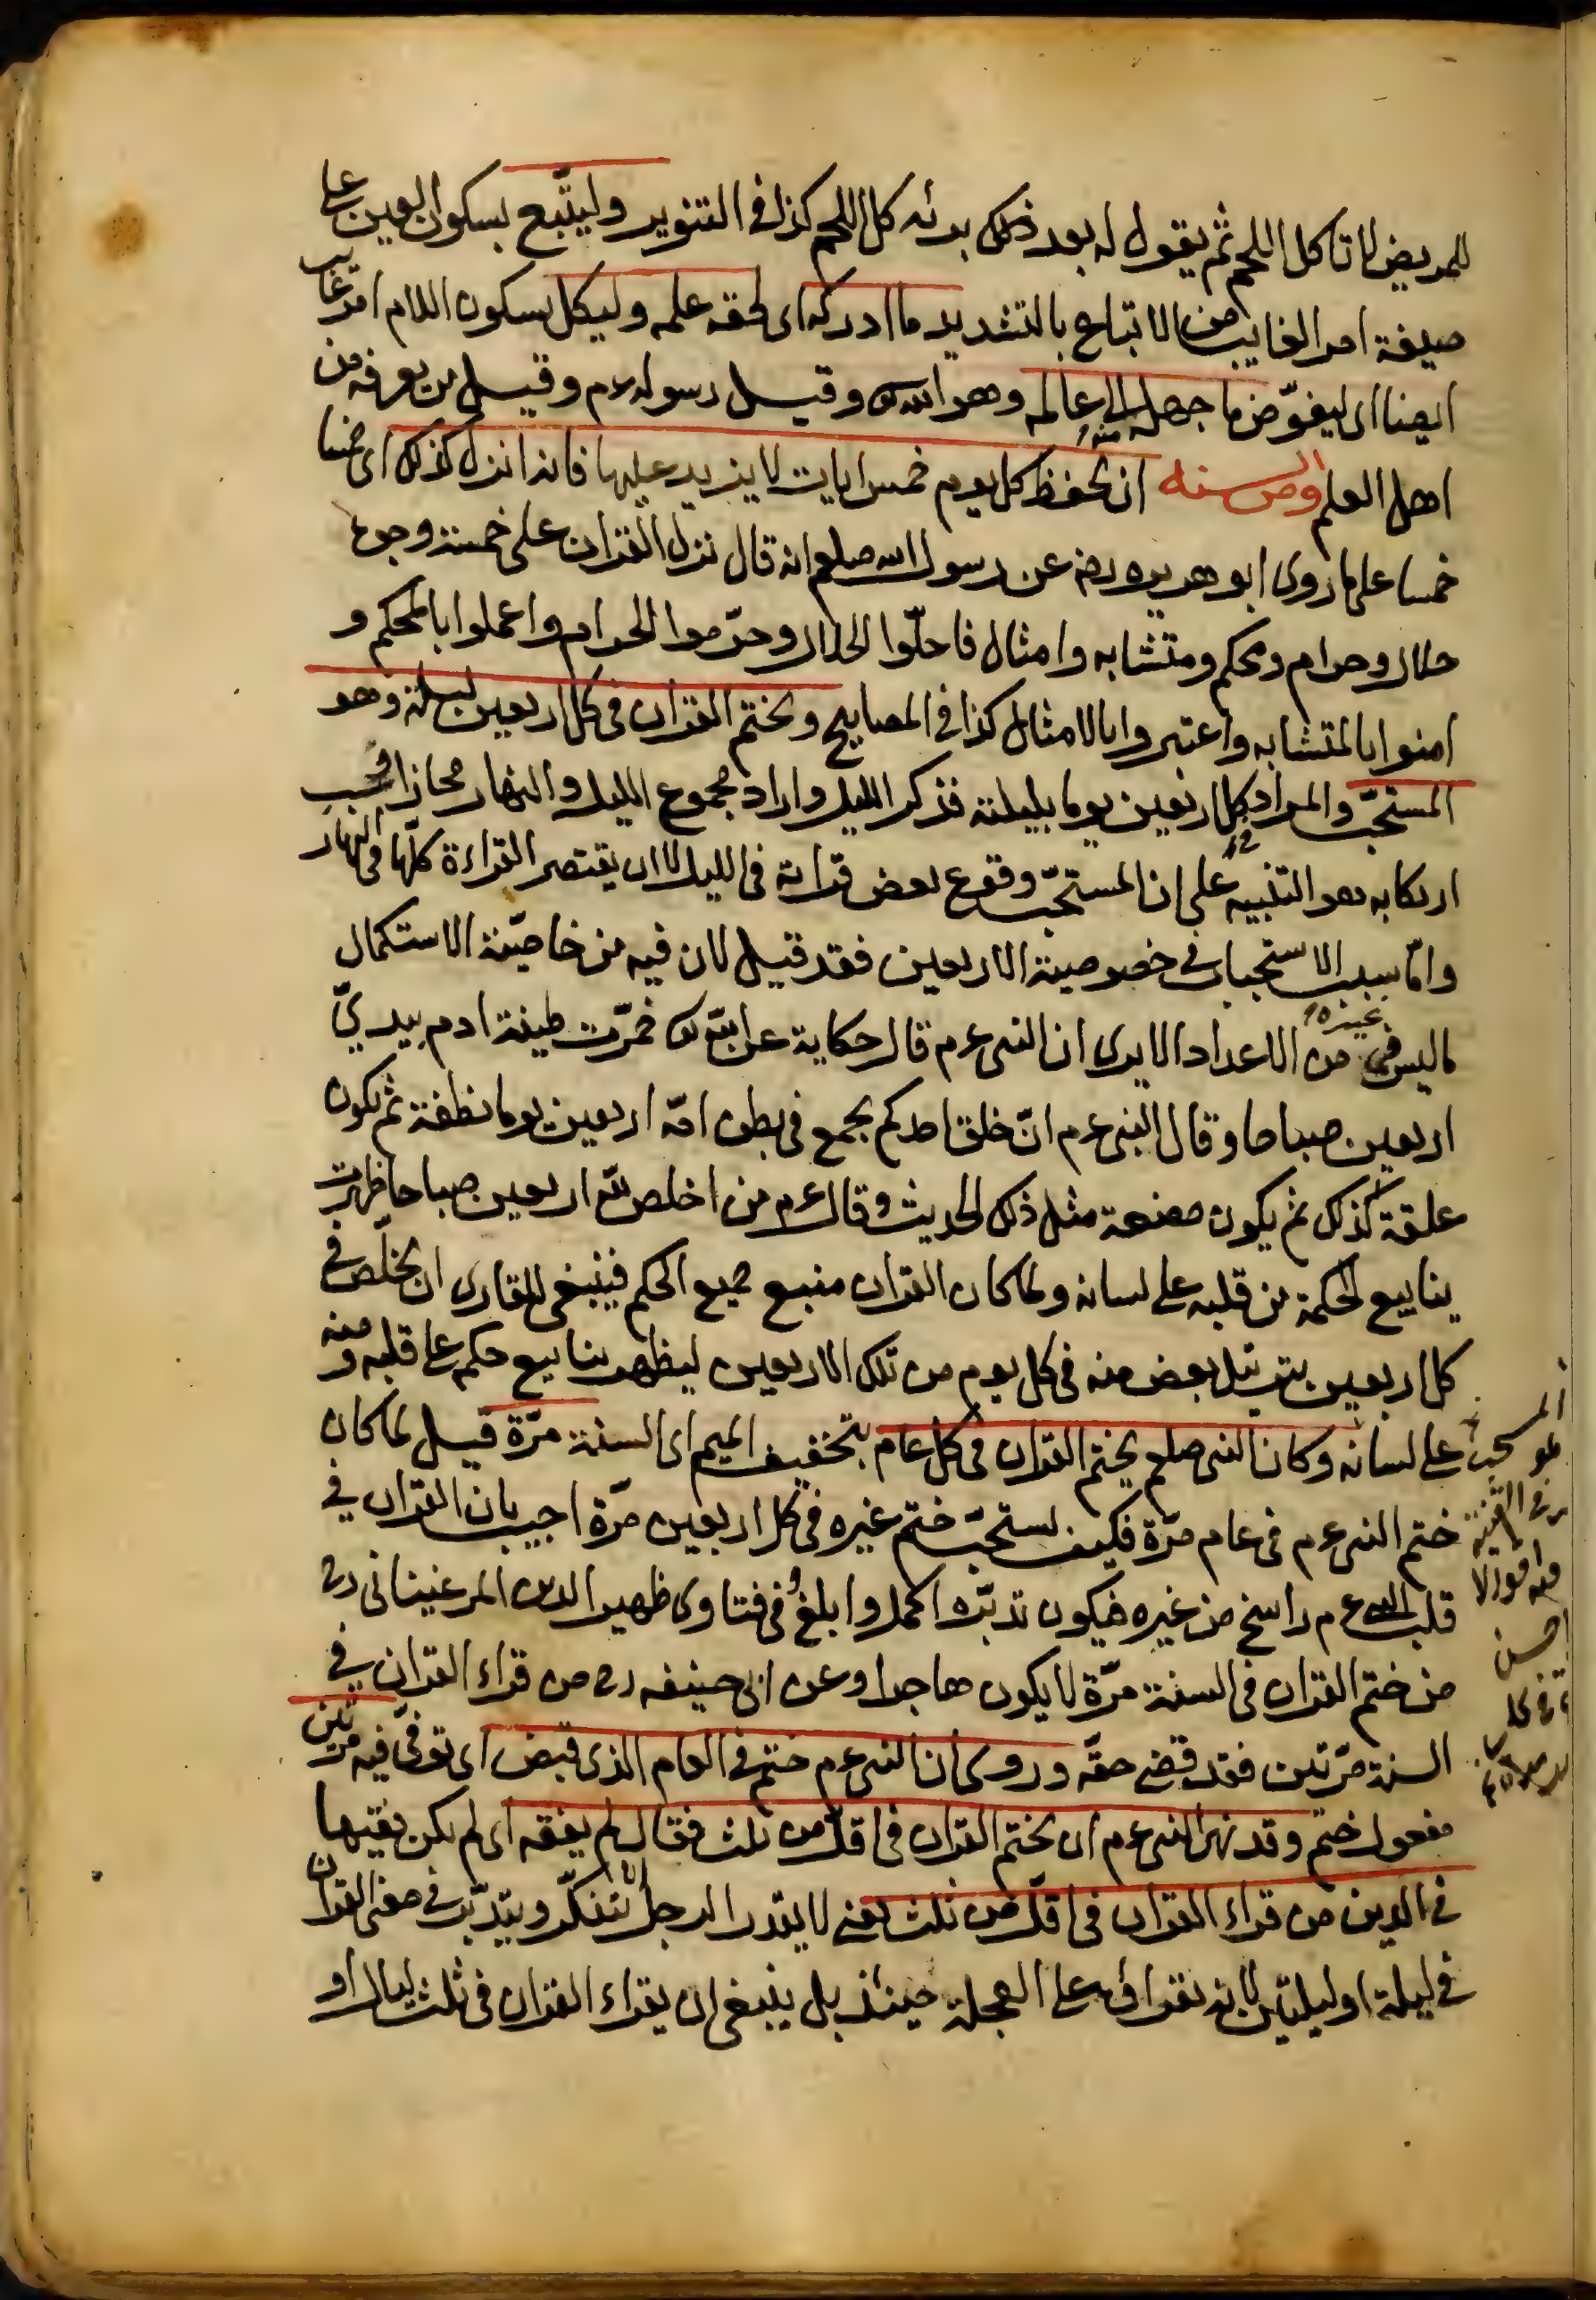 للمريض لا تاكل اللحم ثم يقول له بعد ذلك بدئه كل اللحم كذا فى التنوير وليتّبع بسكون العين على
صيغة امر الغايب من الاتباع بالتشديد ما ادركه اى لحقه علمه وليكل بسكون اللام امر غايب
ايضا اى ليفوّض ما جهل منه الى عالمه وهو الله تع وقيل رسوله عم وقيل من يعرفه من
اهل العلم ومن السنه ان يحفظ كل يوم خمس ايات لا يزيد عليها فانه انزل كذلك اى خمسا
خمسا على ما روى ابو هريره رضه عن رسول الله صلعم انه قال نزل القران على خمسة وجوه
حلال وحرام ومحكم ومتشابه وامثال فاحلّوا الحلال وحرّموا الحرام واعملوا بالمحكم و
امنوا بالمتشابه واعتبروا بالامثال كذا فى المصابيح ويختم القران فى كل اربعين ليلة وهو
المستحبّ والمراد كل اربعين يوما بليلته فذكر الليل واراد مجموع الليل والنهار مجازا
ارتكابه هو التنبيه على ان المستحبّ وقوع بعض قراته فى الليل لا ان يقتصر القراءة كلّها فى النهار
وامّا سبب الاستحباب فى خصوصية الاربعين فقد قيل لان فيه من خاصّية الاستكمال
ما ليس فى غيره من الاعداد الا يرى ان النبى عم قال حكاية عن الله تع خمّرت طينة ادم بيدىّ
اربعين صباحا وقال النبى عم انّ خلق احدكم يجمع فى بطن امّه اربعين يوما نطفة ثم يكون
علقة كذلك ثم يكون مضغة مثل ذلك الحديث وقال عم من اخلص لله اربعين صباحا ظهرت
ينابيع الحكمة من قلبه على لسانه ولما كان القران منبع جميع الحكم فينبغى للقارى ان يخلّص فى
كل اربعين بترتيل بعض منه فى كل يوم من تلك الاربعين ليظهر ينابيع حكم على قلبه ومنه
على لسانه وكان النبى صلعم يختم القران فى كل عام بتخفيف الميم اى السنة مرّة قيل لما كان
ختم النبى عم فى عام مرّة فكيف يستحبّ ختم غيره فى كل اربعين مرّة اجيب بان القران فى
قلب النبى عم راسخ من غيره فيكون تدبّره اكمل وابلغ وفى فتاوى ظهير الدين المرغينانى رح
من ختم القران فى السنة مرّة لا يكون هاجرا وعن ابى حنيفه رح من قراء القران فى
السنة مرّتين فقد قضى حقّه وروى ان النبى عم ختم فى العام الذى قبض اى توفّى فيه مرّتين
مفعول ختم وقد نهى النبى عم ان يختم القران فى اقلّ من ثلث فقال لم يفقه اى لم يكن فقيها
فى الدين من قراء القران فى اقلّ من ثلث يعنى لا يقدر الرجل ان يتفكّر ويتدبّر فى معنى القران
فى ليلة او ليلتين لانه يقرا فى على العجلة حينئذ بل ينبغى ان يقراء القران فى ثلث ليال او